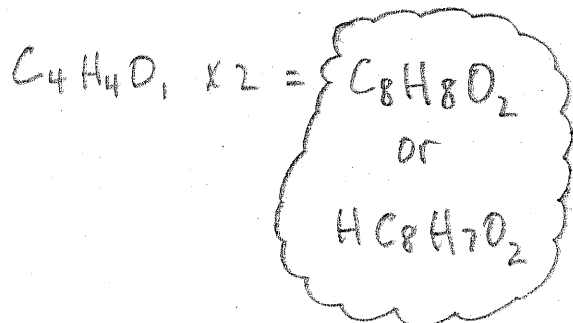 C₄H₄O₁ x 2 = C₈H₈O₂
or
HC₈H₇O₂